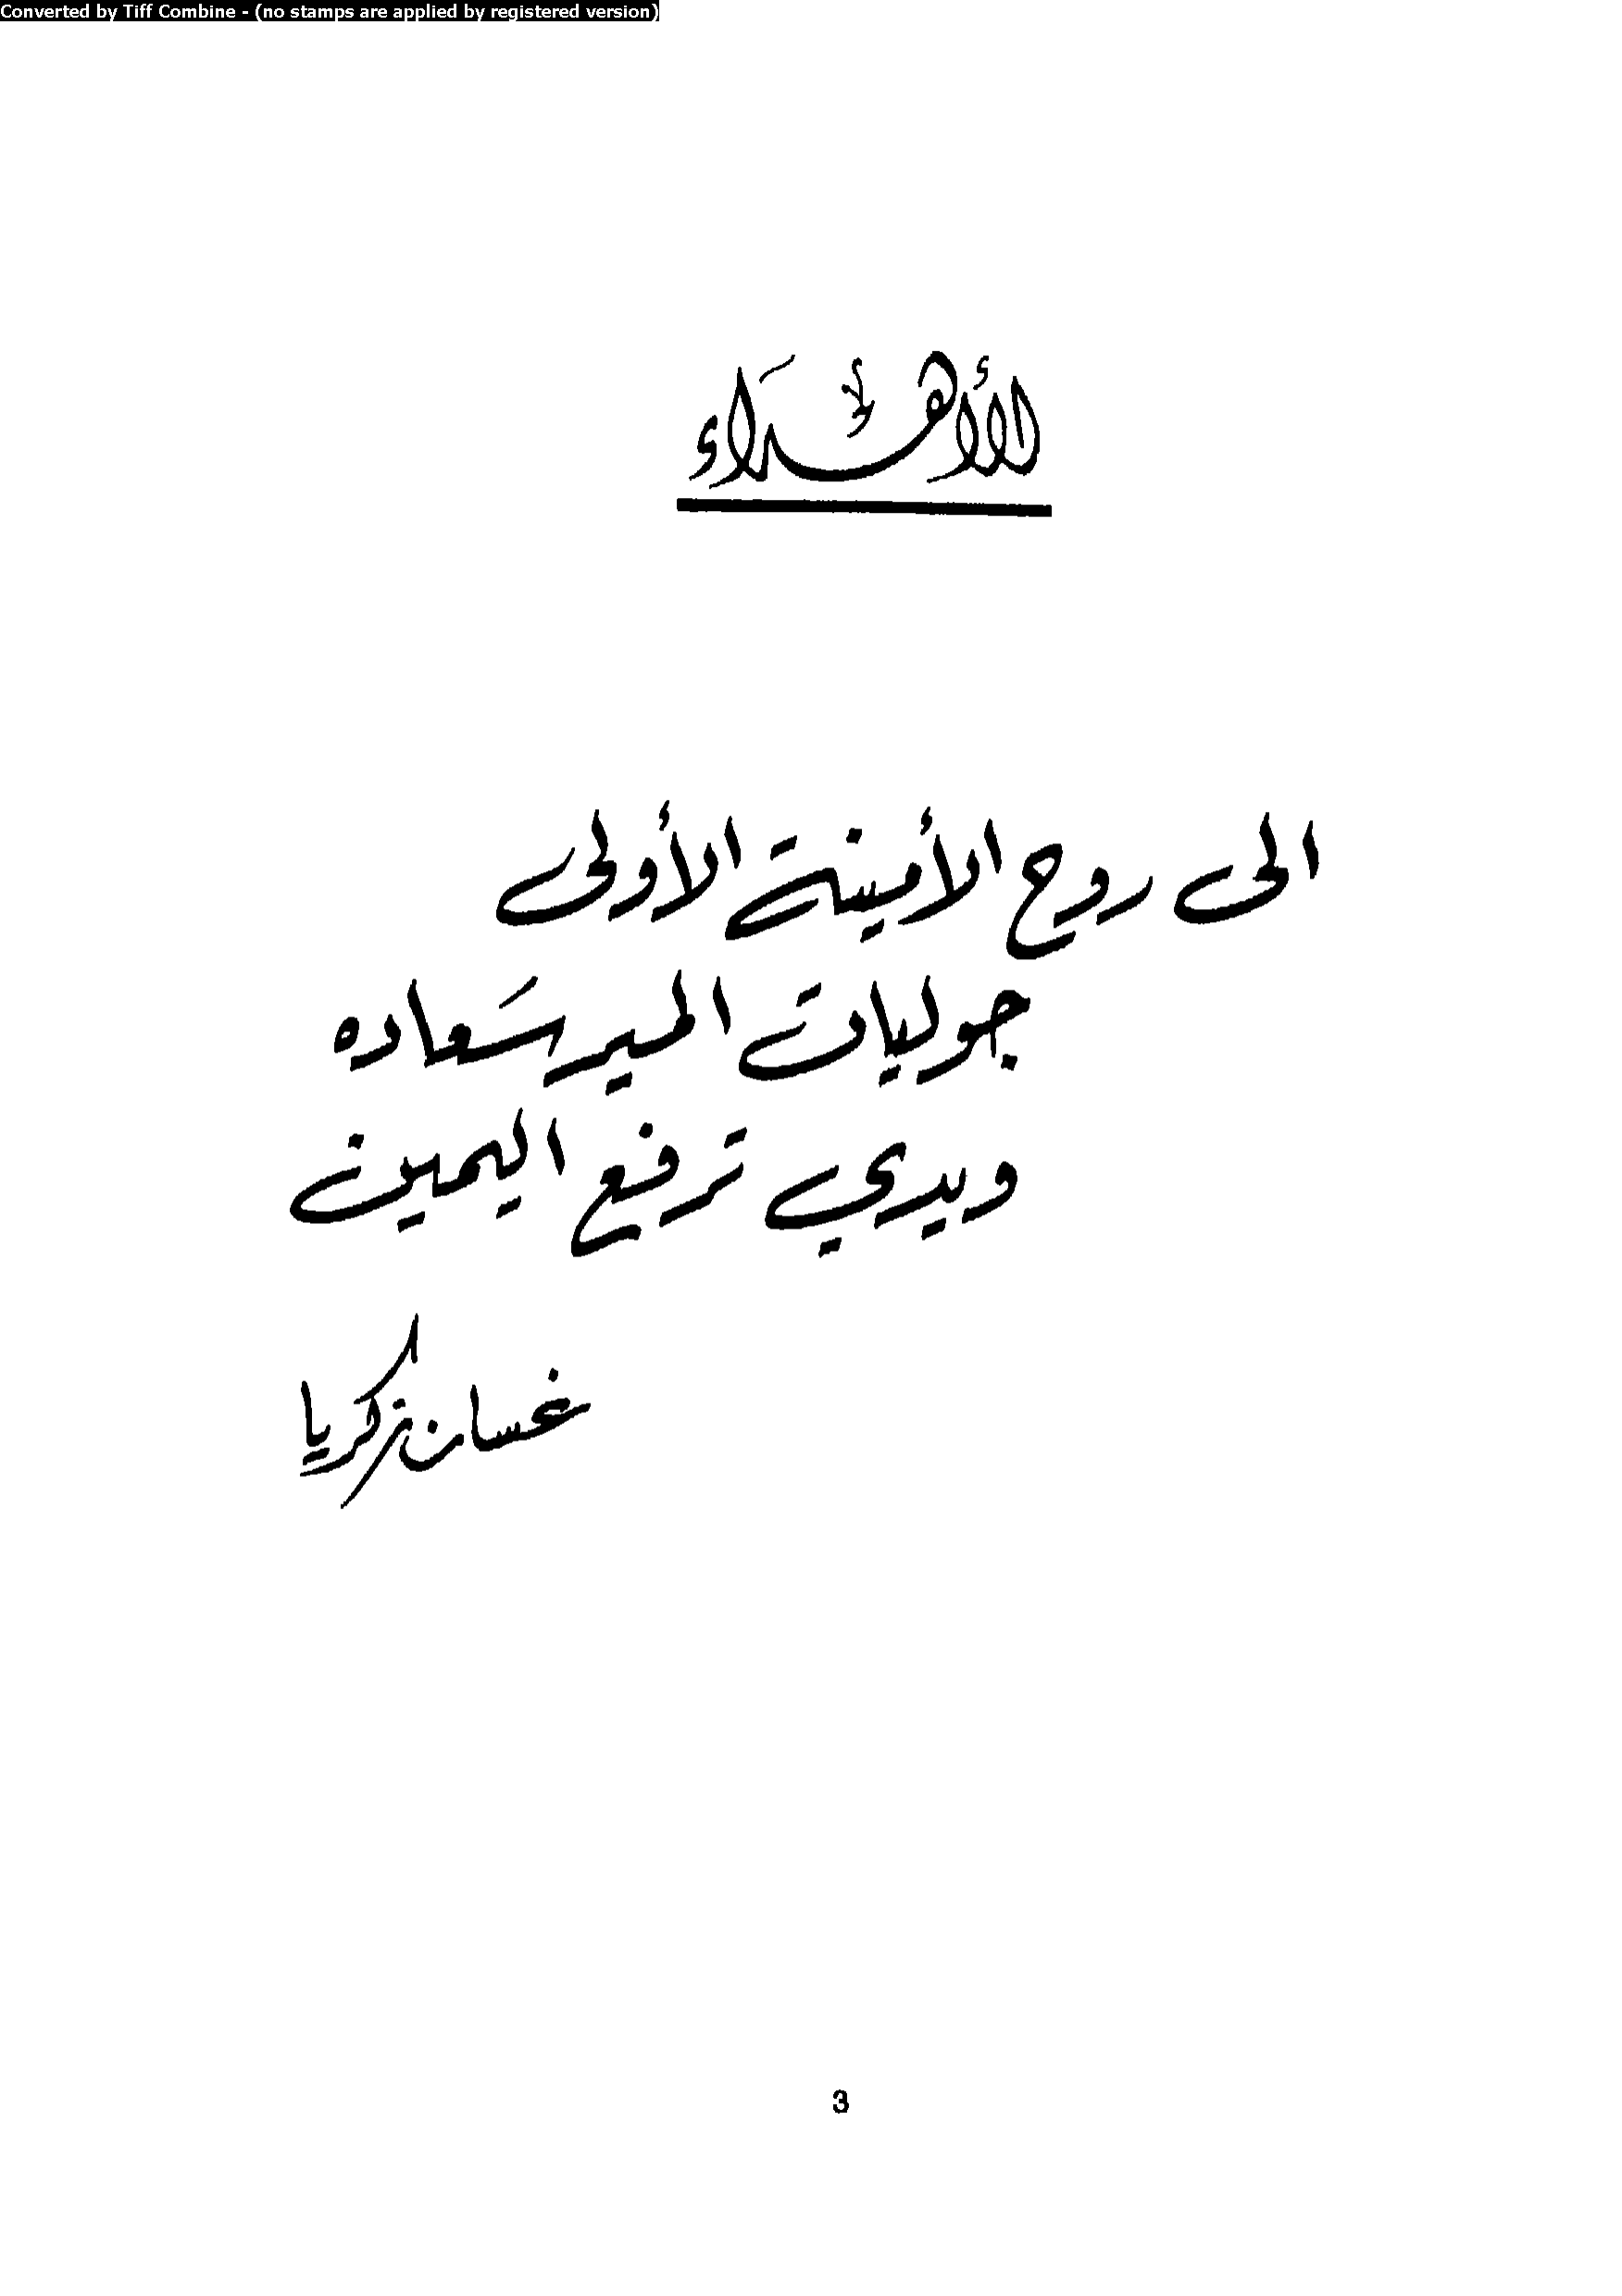 Converted by Tiff Combine - (no stamps are applied by registered version)
الأهداء
الى روح الأمينة الأولى
جولييات المير سَعاده
ويدي ترفع اليمين
غسان زكريا
3